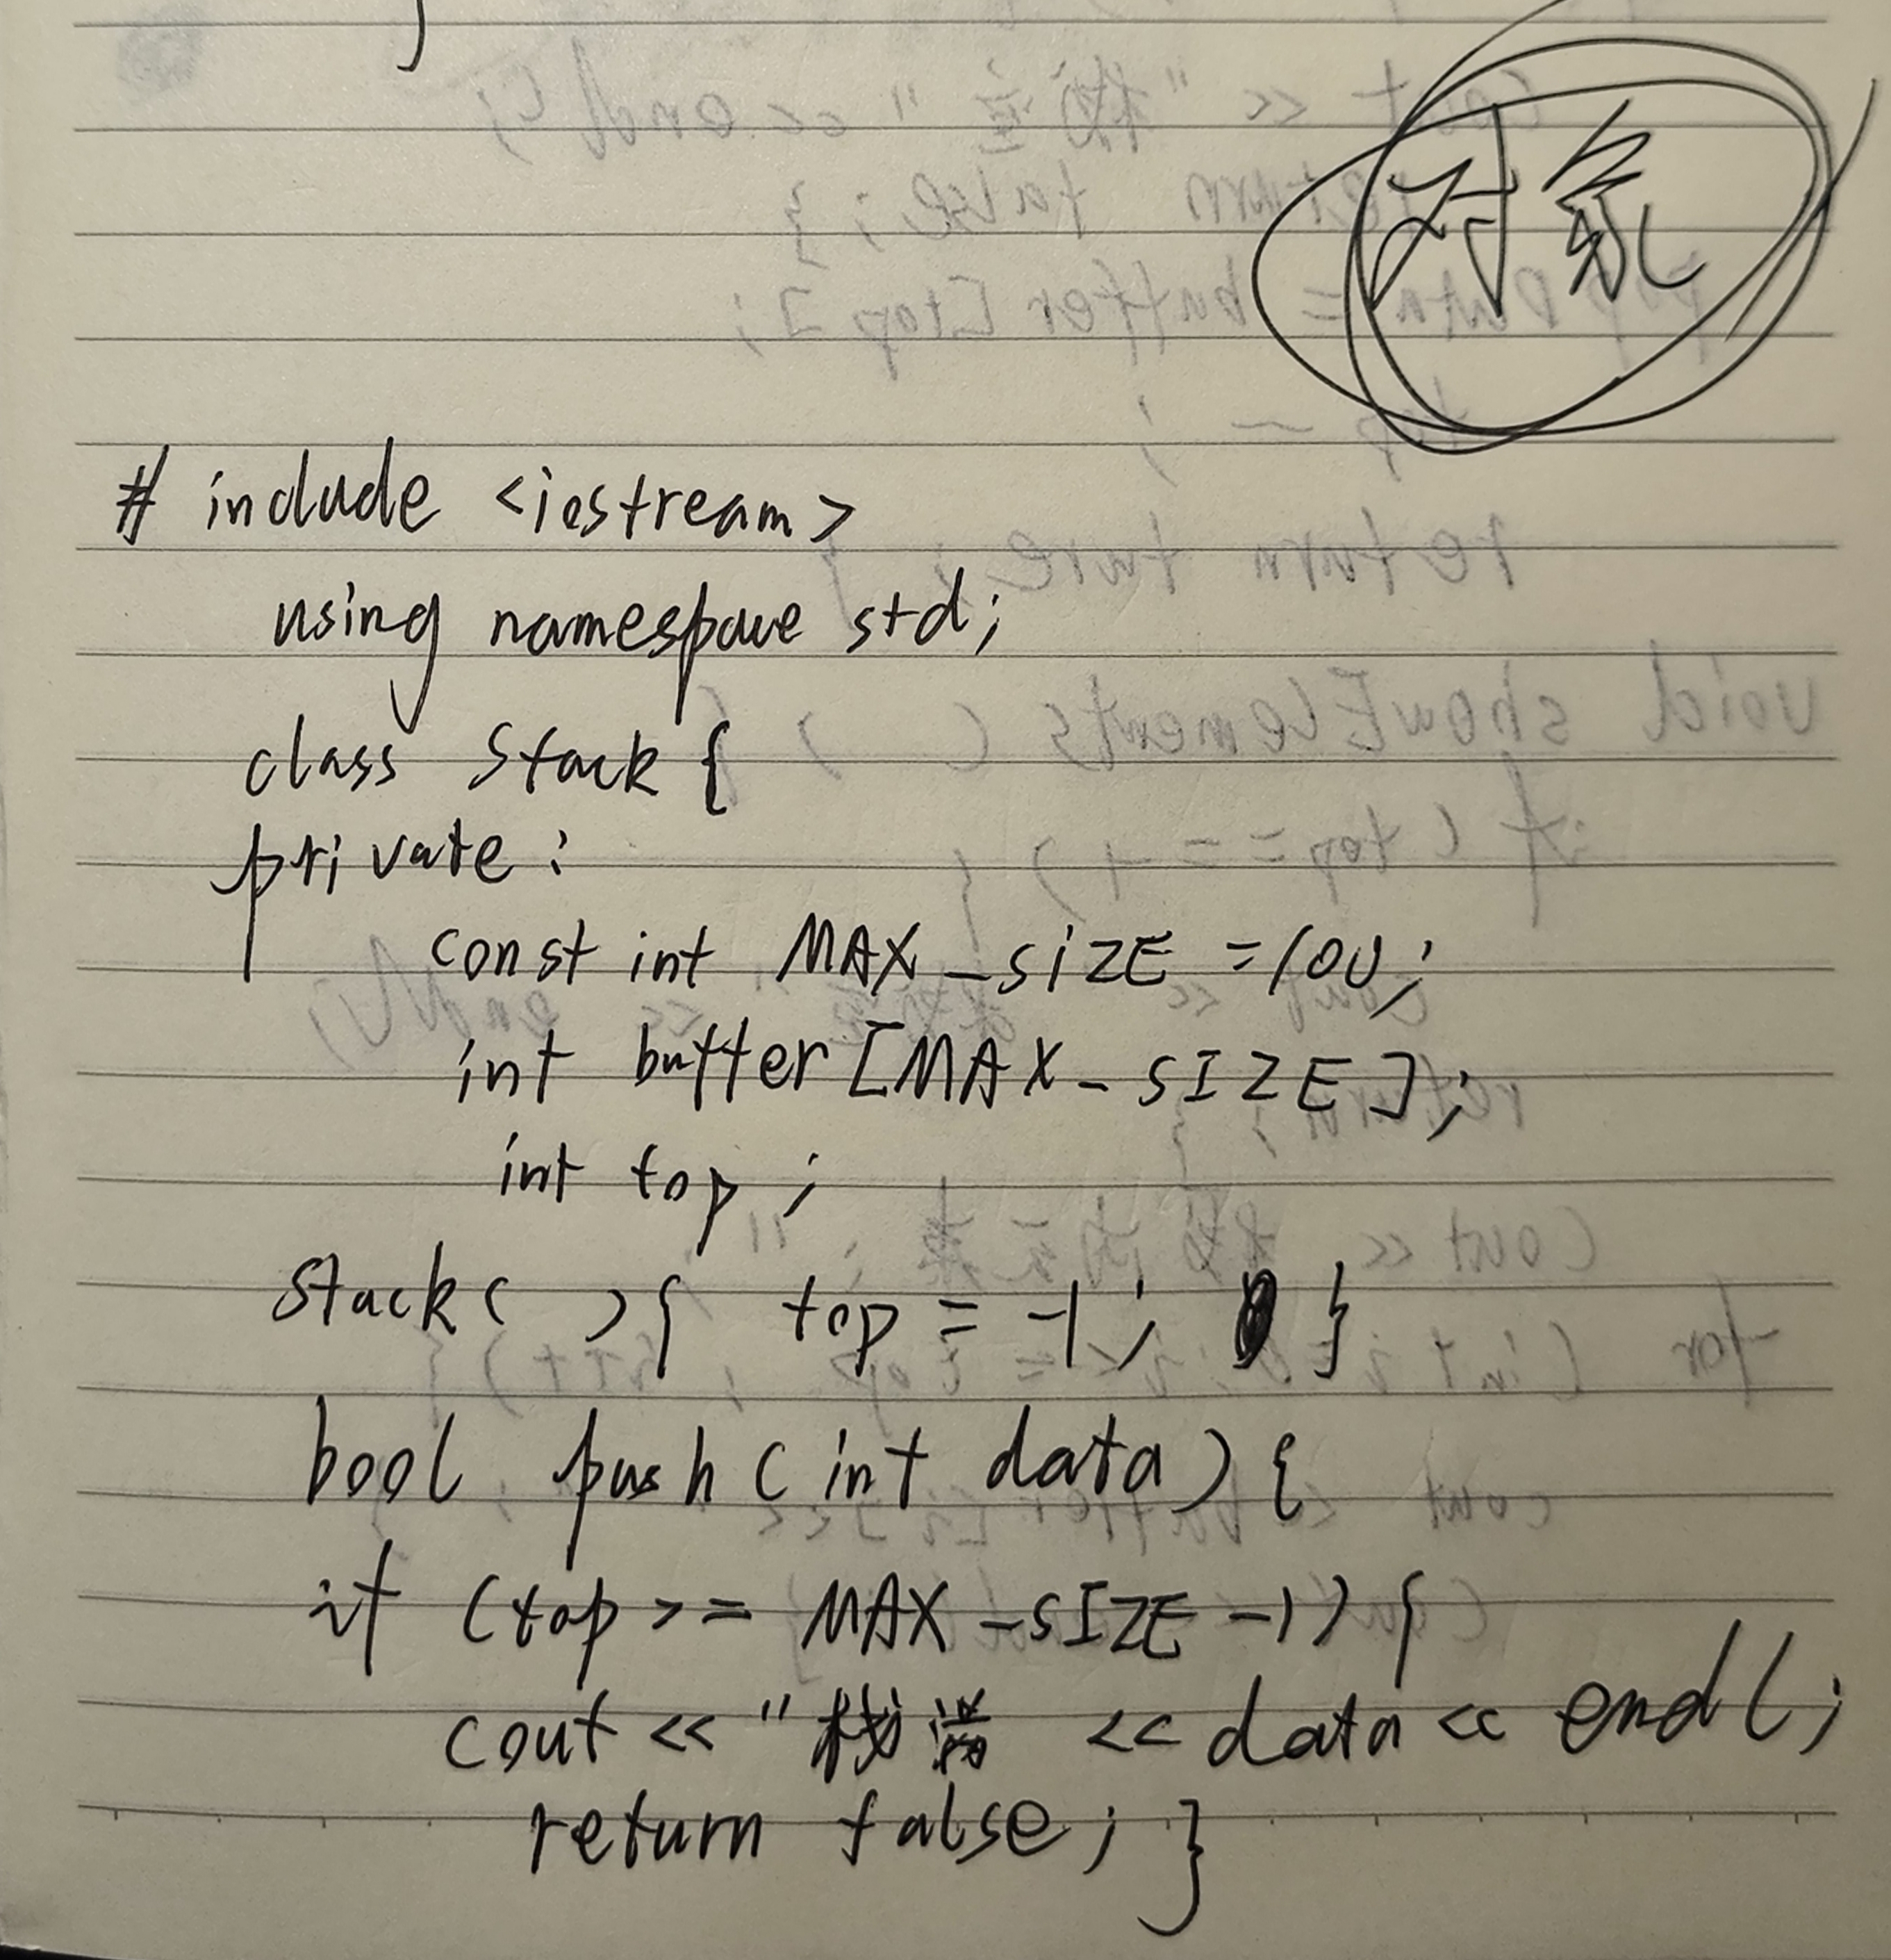 }
对象
# include <iostream>
using namespace std;
class Stack {
private:
const int MAX_SIZE =100;
int buffer [MAX_SIZE];
int top;
Stack( ){ top = -1; }
bool push (int data) {
if (top >= MAX_SIZE -1) {
cout << "栈满 << data << endl;
return false; }